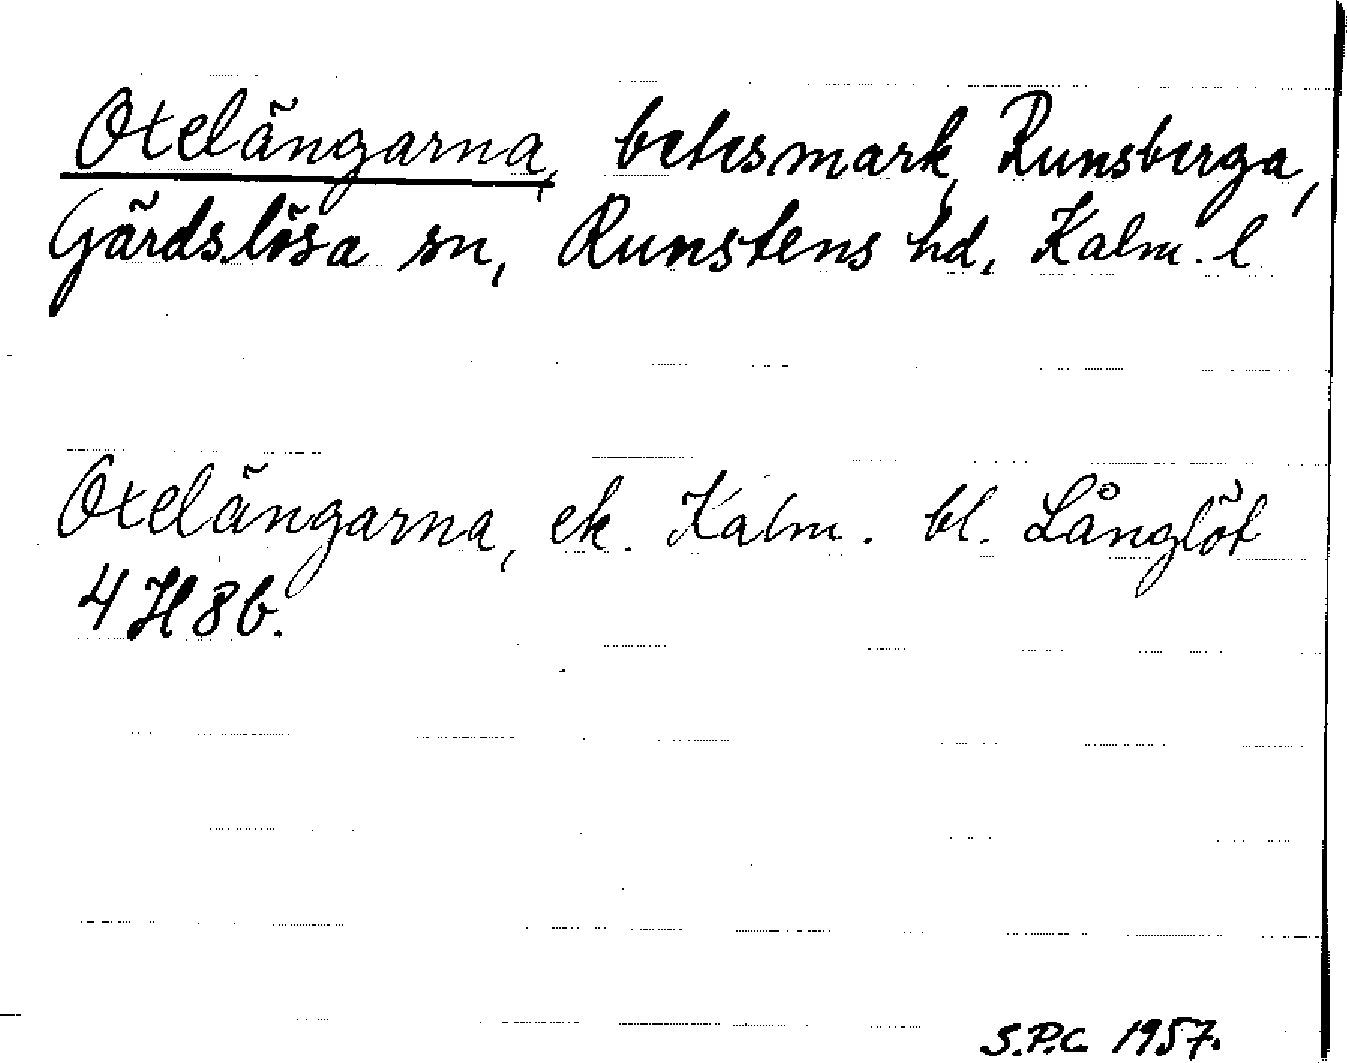 Oxelängarna, betesmark, Runsberga,
Gärdslösa sn, Runstens hd, Kalm. l
Oxelängarna, ek. Kalm. bl. Långlöt
4 H 8 b.
S.P.C. 1957.